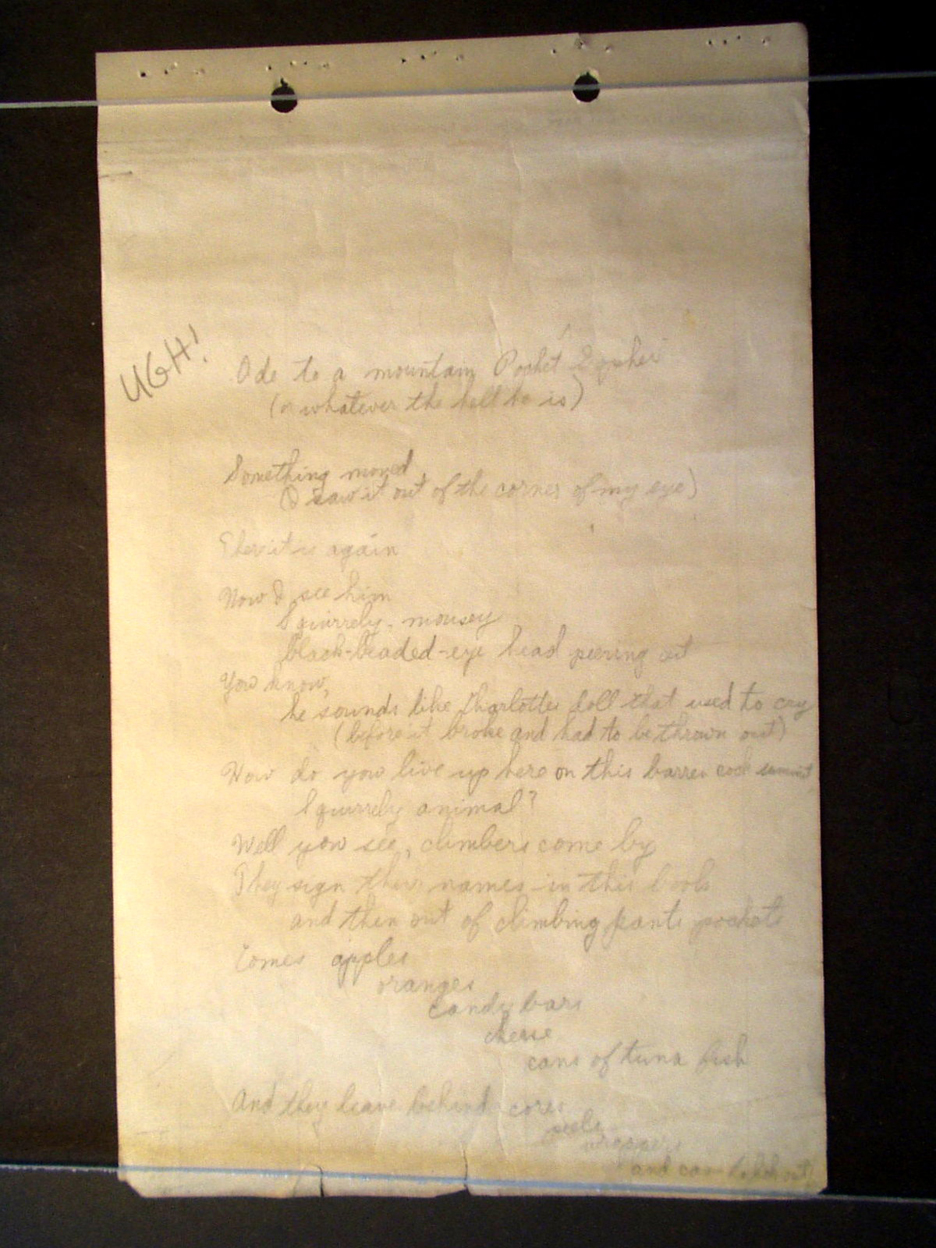 UGH!
Ode to a mountain Pocket Gopher
(or whatever the hell he is)
Something moved
(I saw it out of the corner of my eye)
There it is again
Now I see him
Squirrely, mousey
black-beaded-eye head peering out
You know,
he sounds like Charlottes doll that used to cry
(before it broke and had to be thrown out)
How do you live up here on this barren cold summit
Squirrely animal?
Well you see, climbers come by
They sign their names in this book
and then out of climbing pants pockets
Comes apples
oranges
candy bars
cheese
cans of tuna fish
And they leave behind cores
peels
wrappers
and cans